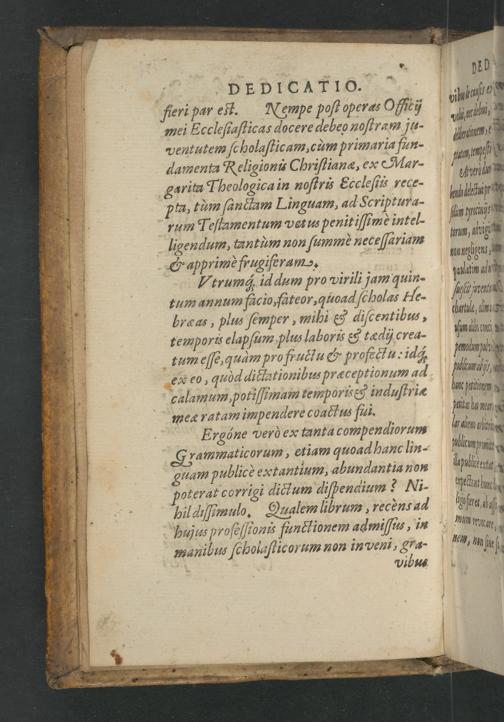 DEDICATIO.
fieri par est. Nempe post operas Officij
mei Ecclesiasticas docere debeo nostram ju-
ventutem scholasticam, cùm primaria fun-
damenta Religionis Christianæ, ex Mar-
garita Theologica in nostris Ecclesiis rece-
pta, tùm sanctam Linguam, ad Scriptura-
rum Testamentum vetus penitissimè intel-
ligendum, tantùm non summè necessariam
& apprimè frugiferam.
Vtrumq́; id dum pro virili jam quin-
tum annum facio, fateor, quoad scholas He-
bræas, plus semper, mihi & discentibus,
temporis elapsum, plus laboris & tædij crea-
tum esse, quàm pro fructu & profectu: idq́;
ex eo, quòd dictationibus præceptionum ad
calamum, potissimam temporis & industriæ
meæ ratam impendere coactus fui.
Ergóne verò ex tanta compendiorum
Grammaticorum, etiam quoad hanc lin-
guam publicè extantium, abundantia non
poterat corrigi dictum dispendium? Ni-
hil dissimulo. Qualem librum, recèns ad
hujus professionis functionem admissus, in
manibus scholasticorum non inveni, gra-
vibus
DED